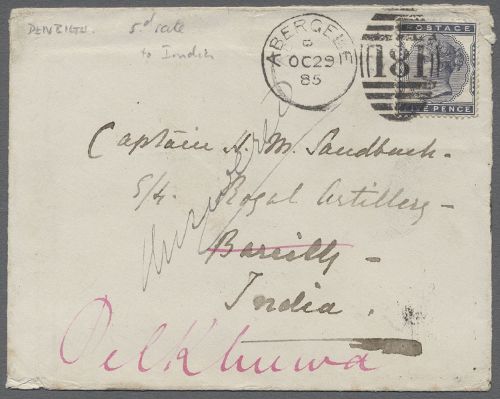 DENBIGH. 5.d rate
to India
ABERGELE
OC 29
85
181
POSTAGE
PENCE
Captain H. M. Sandbach -
5/4. Royal Artillery -
Bareilly -
India.
Pilkhuwa